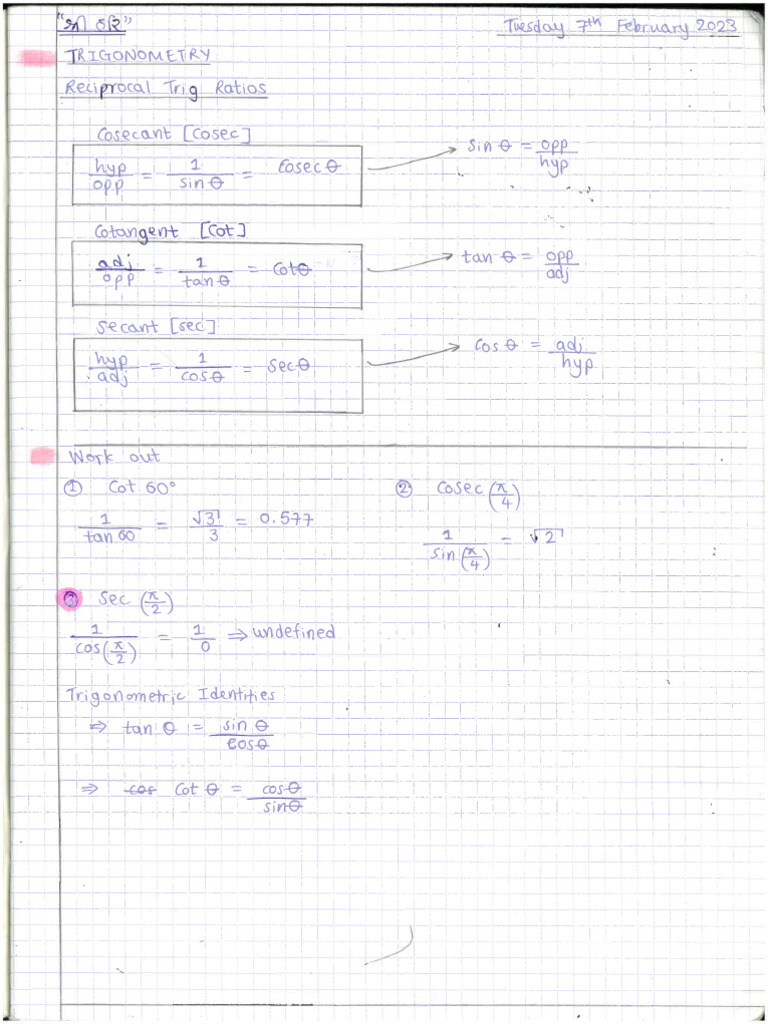 Tuesday 7th February 2023
TRIGONOMETRY
Reciprocal Trig Ratios
Cosecant [Cosec]
hyp/opp = 1/sinθ = Cosecθ → sinθ = opp/hyp
Cotangent [Cot]
adj/opp = 1/tanθ = Cotθ → tanθ = opp/adj
Secant [sec]
hyp/adj = 1/cosθ = Secθ → Cosθ = adj/hyp
Work out
① Cot 60°
1/tan60 = √3/3 = 0.577
② Cosec (π/4)
1/sin(π/4) = √2
③ Sec (π/2)
1/cos(π/2) = 1/0 ⇒ undefined
Trigonometric Identities
⇒ tanθ = sinθ/cosθ
⇒ cos Cotθ = cosθ/sinθ